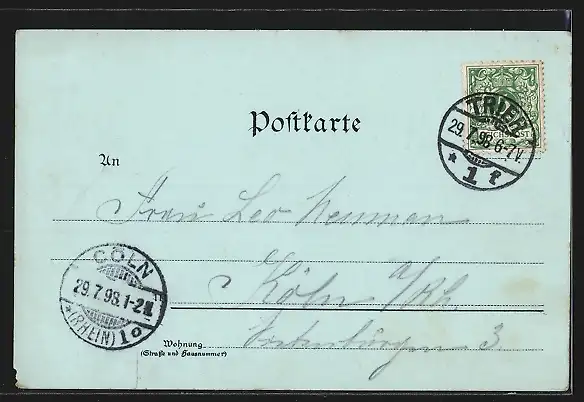 Postkarte
TRIER
29.7.98.6-7V.
* 1 f
REICHSPOST
An
Frau Leo Neumann
CÖLN
29.7.98.1-2N
*(RHEIN) 1o
Köln a/Rh.
3
Wohnung
(Straße und Hausnummer)